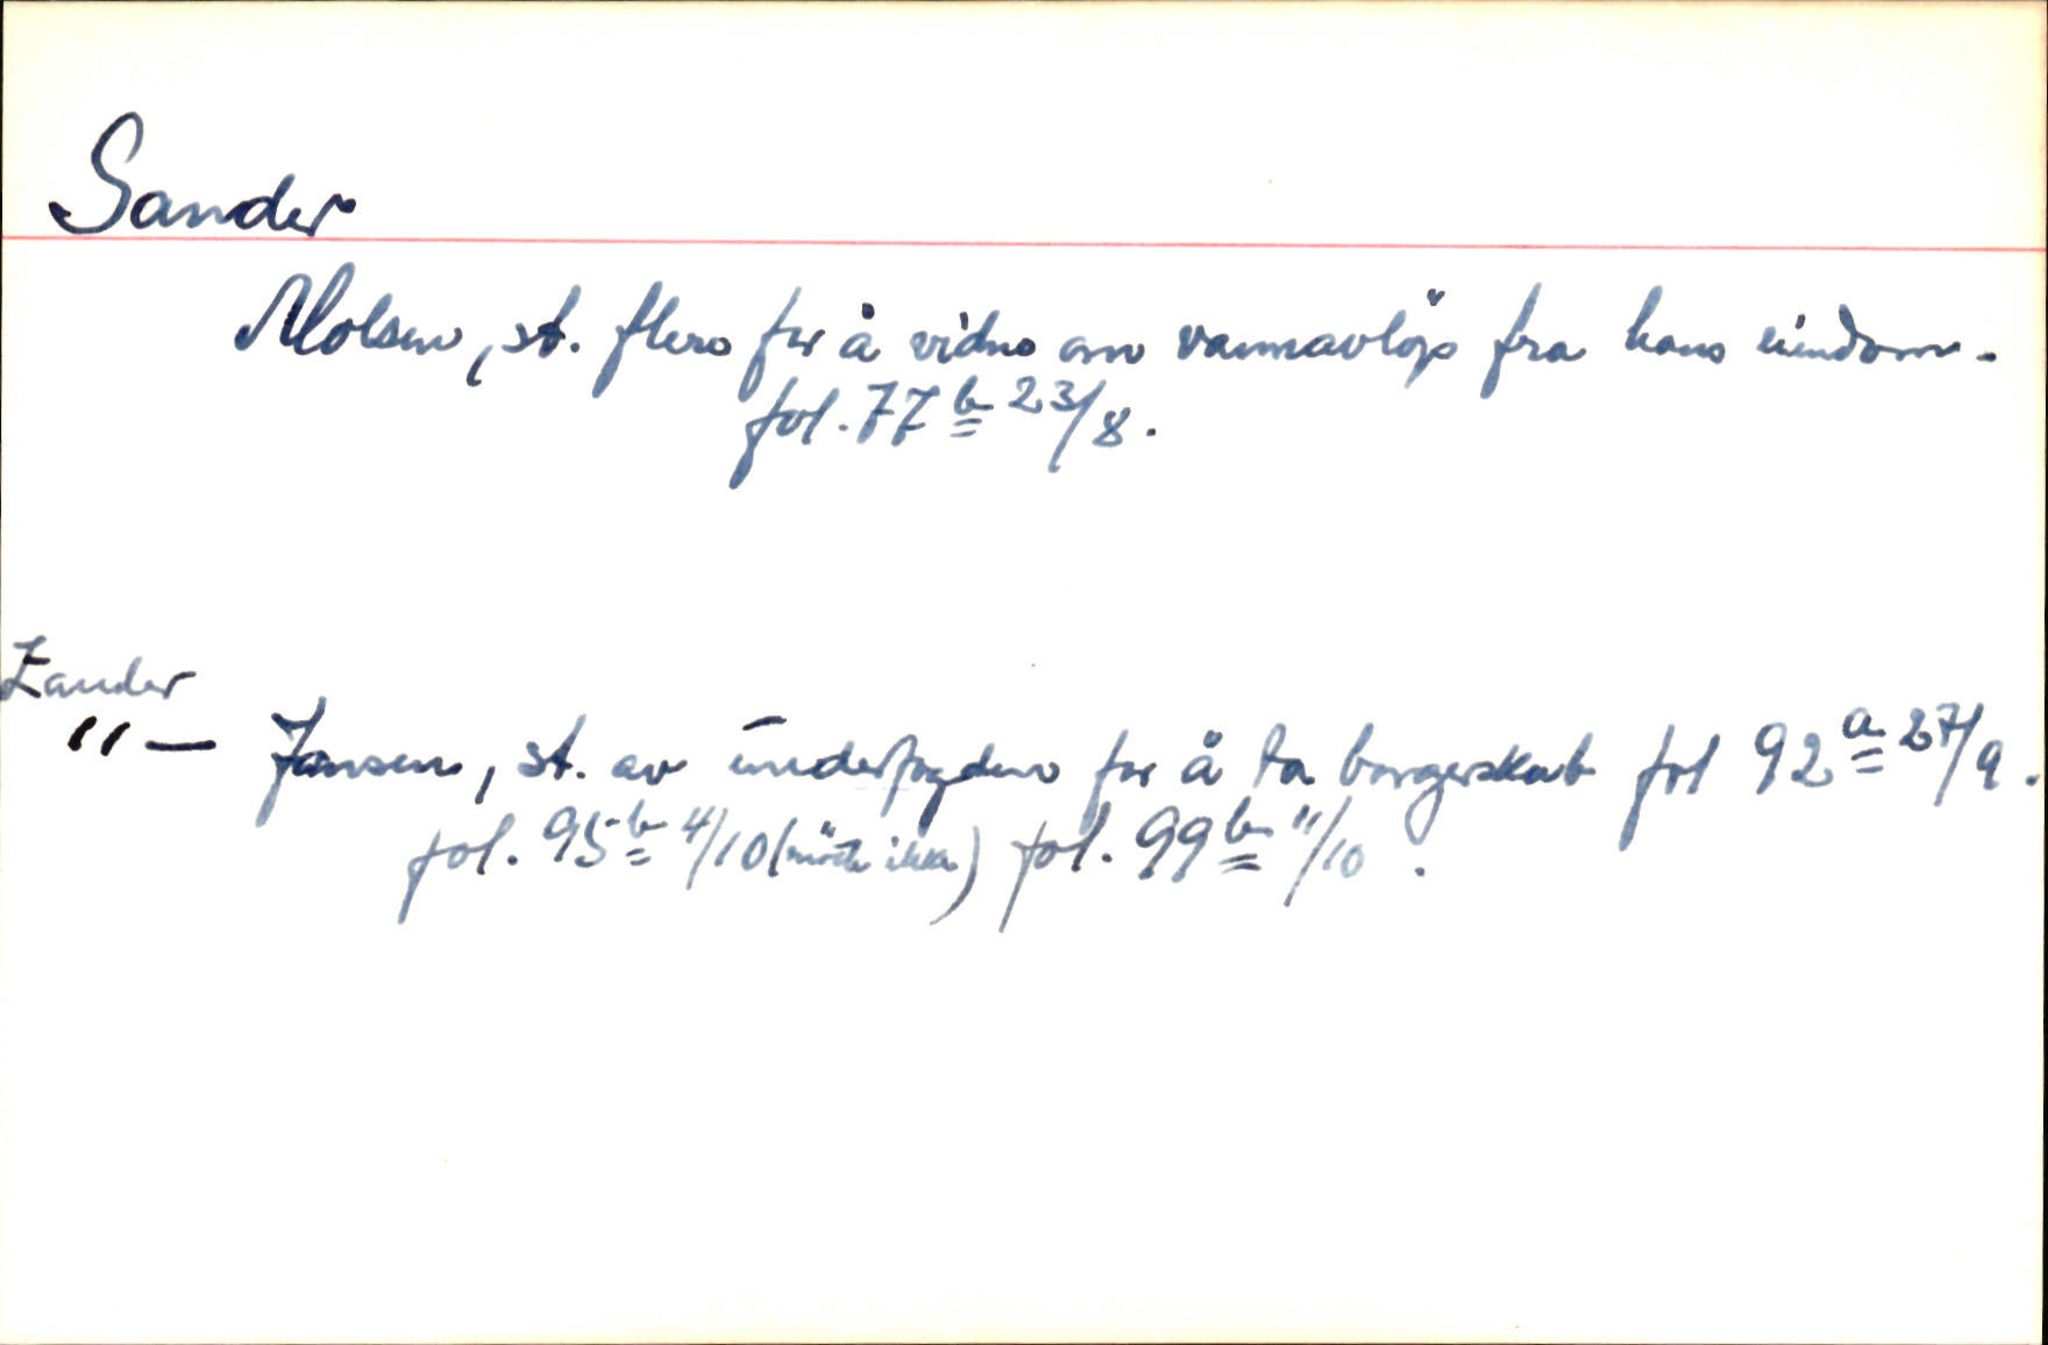 Sander
Molsen, st. flere for å vidne om vannavlöp fra hans eiendom.
fol. 77 b 23/8.
Zander
"— Jansen, st. av underfogden for å ta borgerskab fol 92 a 27/9.
fol. 95 b 4/10 (möte ikke) fol. 99 b 11/10.